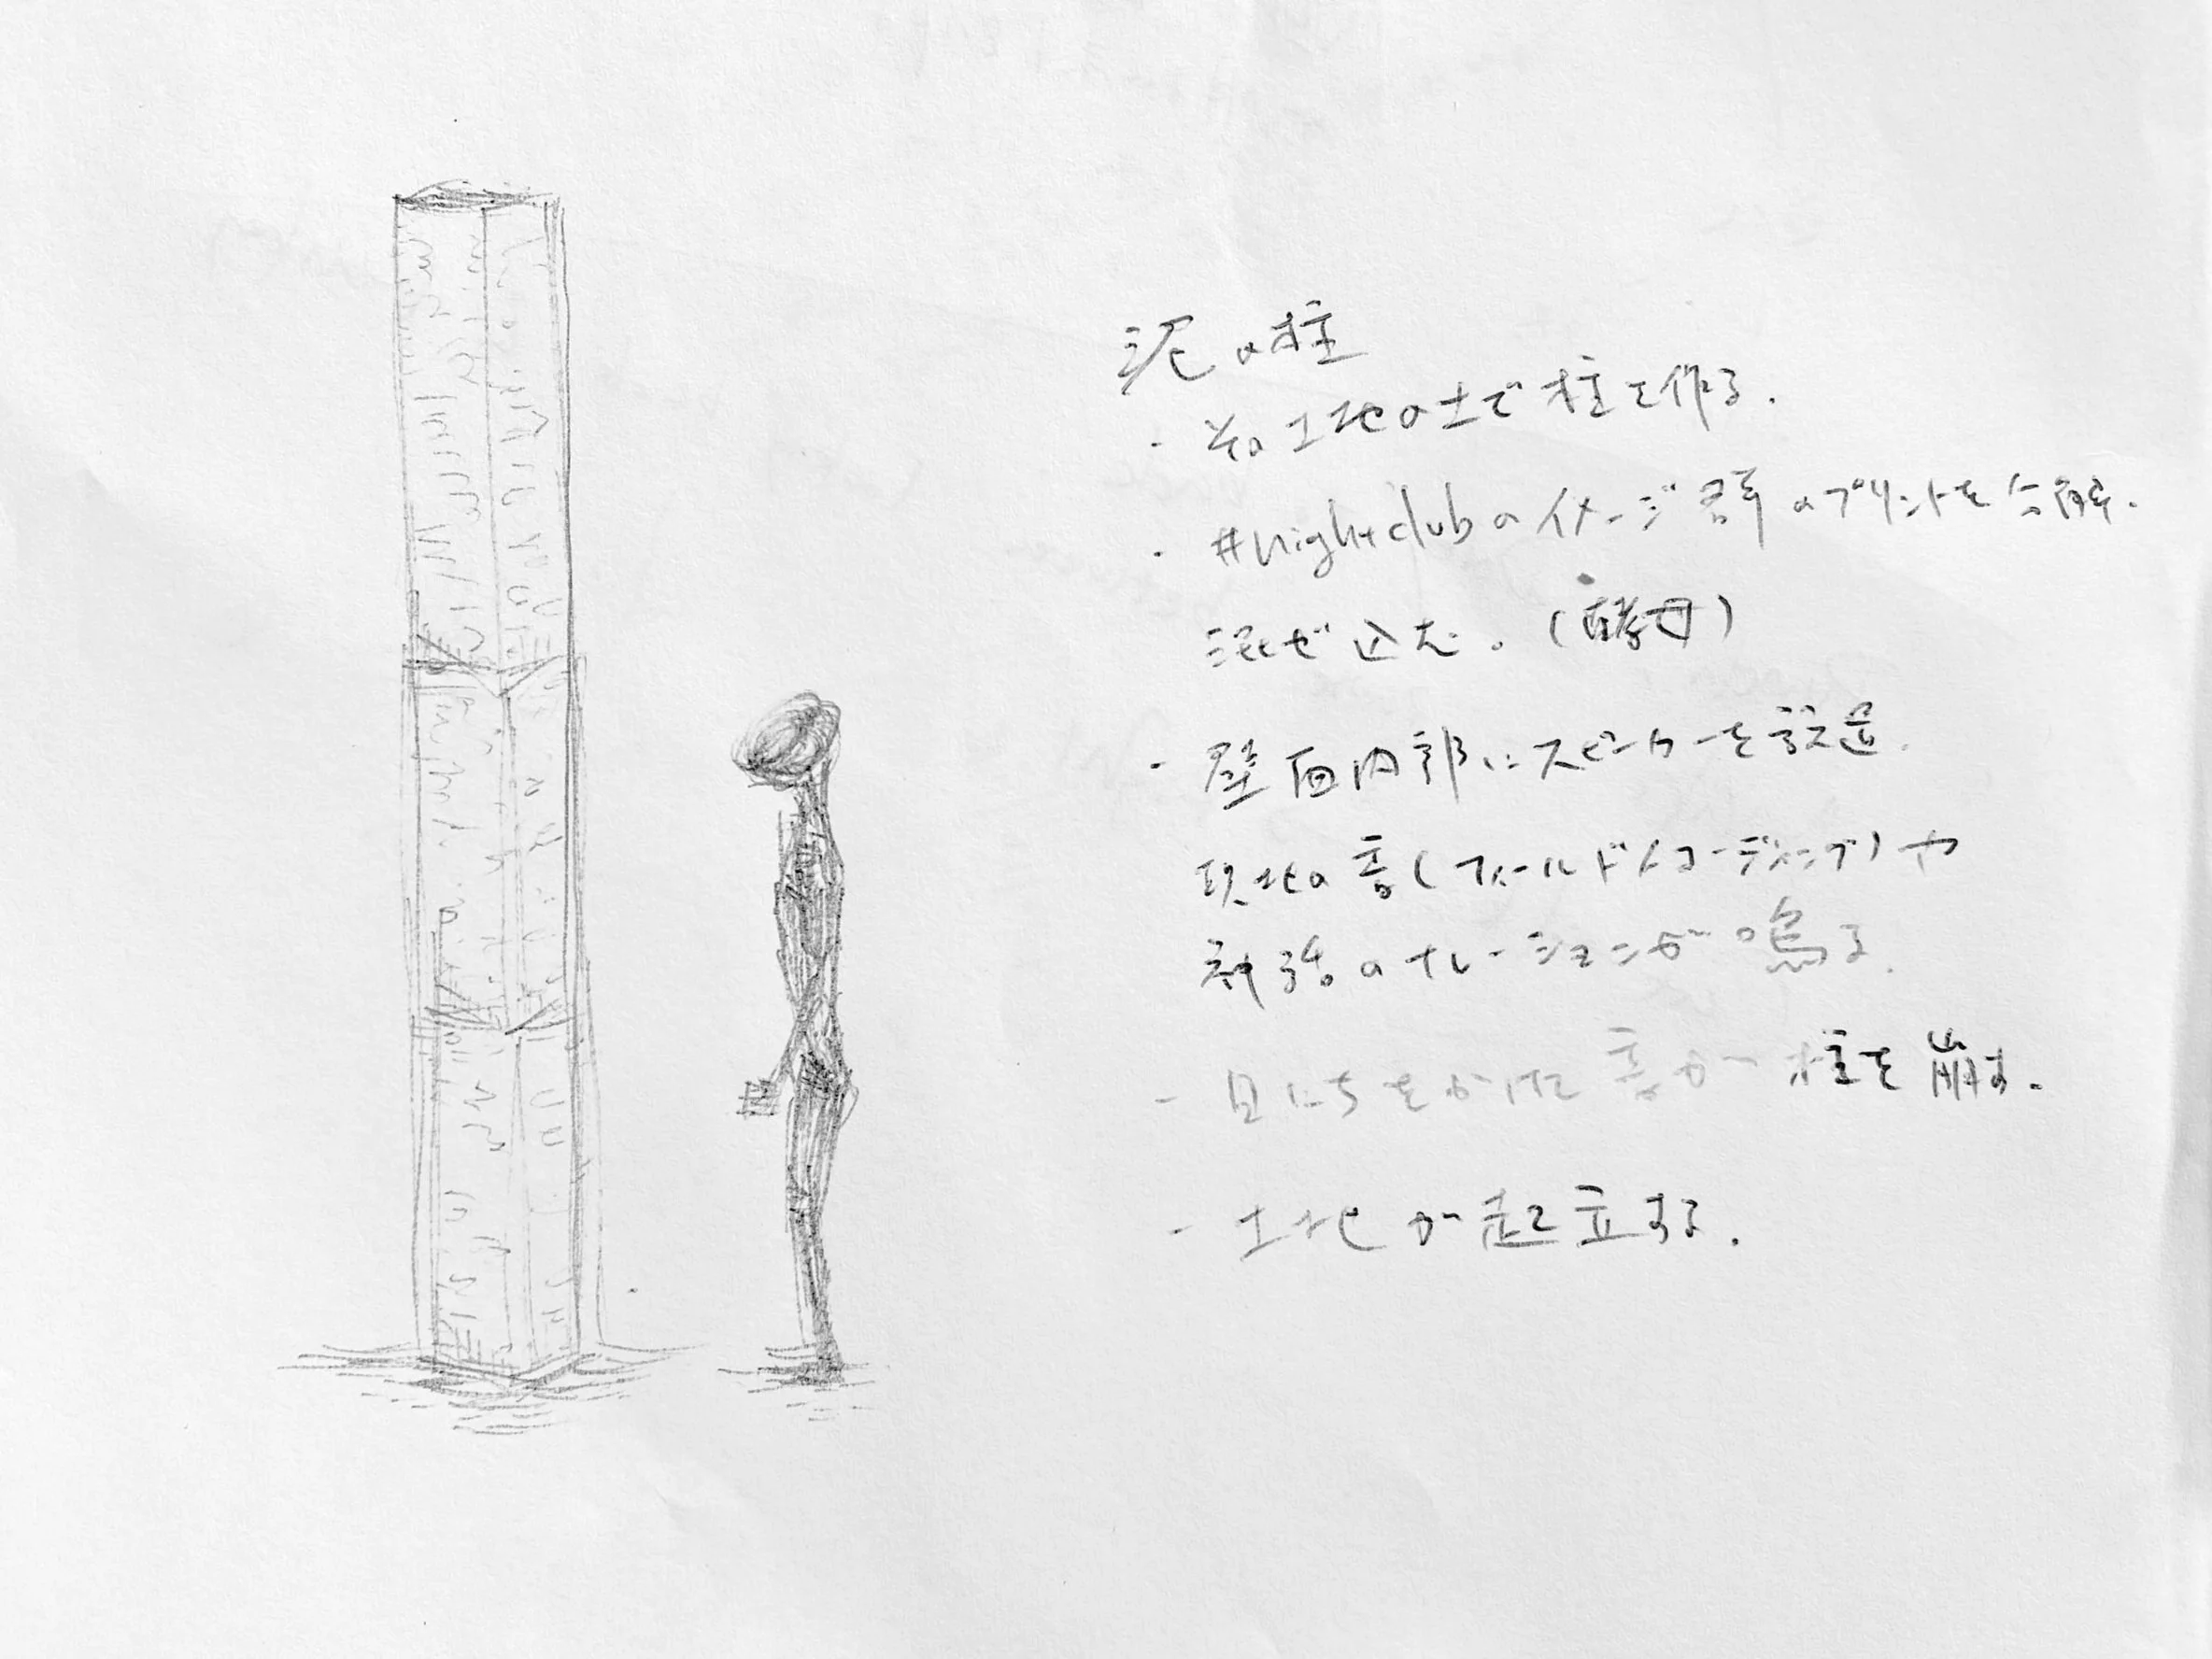 泥の柱
・その土地の土で柱を作る.
・#nightclubのイメージ群のプリントを分解.
混ぜ込む。(酵母)
・壁面内部にスピーカーを設置.
現地の音(フィールドレコーディング)や
神話のナレーションが鳴る.
- 日にちをかけた音が柱を崩す.
- 土地が起立する.